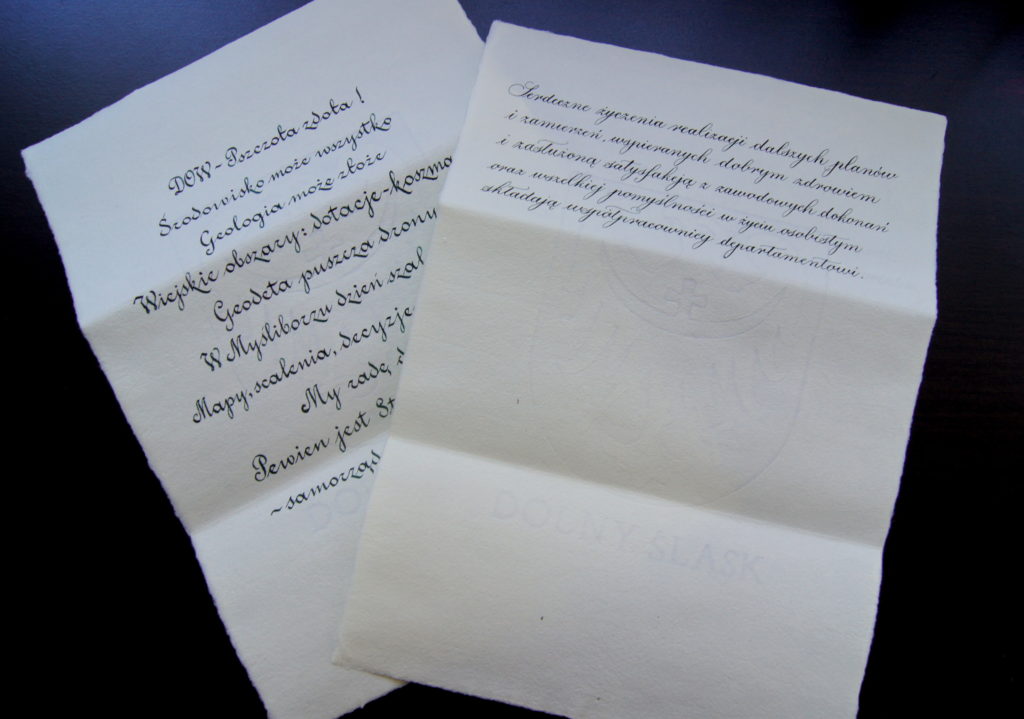 DOW - Pszczoła zdoła !
Środowisko może wszystko
Geologia może złoże
Wiejskie obszary: dotacje-koszma
Geodeta puszcza drony
W Myśliborzu dzień szal
Mapy, scalenia, decyzje
My radę, d
Pewien jest
~ samorząd
Serdeczne życzenia realizacji dalszych planów
i zamierzeń, wspieranych dobrym zdrowiem
i zasłużoną satysfakcją z zawodowych dokonań
oraz wszelkiej pomyślności w życiu osobistym
składają współpracownicy departamentowi.
DOLNY ŚLĄSK